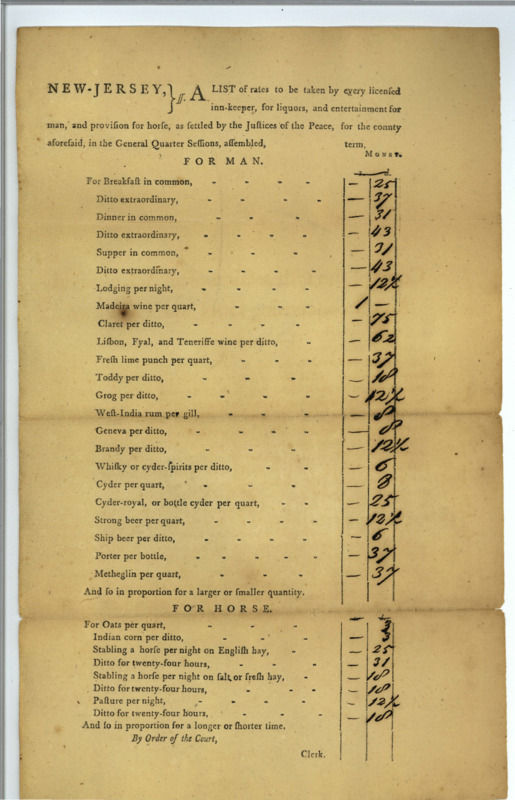 NEW-JERSEY,} ſſ. A LIST of rates to be taken by every licenſed
inn-keeper, for liquors, and entertainment for
man, and proviſion for horſe, as ſettled by the Juſtices of the Peace, for the county
aforeſaid, in the General Quarter Seſſions, aſſembled, term.
MONEY.
FOR MAN.
For Breakfaſt in common, - - - - — 25
Ditto extraordinary, - - - - — 37
Dinner in common, - - - — 31
Ditto extraordinary, - - - - — 43
Supper in common, - - - - — 31
Ditto extraordinary, - - - - — 43
Lodging per night, - - - - — 12½
Madeira wine per quart, - - - 1 —
Claret per ditto, - - - - — 75
Liſbon, Fyal, and Teneriffe wine per ditto, - — 62
Freſh lime punch per quart, - - - — 37
Toddy per ditto, - - - — 18
Grog per ditto, - - - - — 12½
Weſt-India rum per gill, - - - — 8
Geneva per ditto, - - - — 8
Brandy per ditto, - - - — 12½
Whiſky or cyder-ſpirits per ditto, - - — 6
Cyder per quart, - - - — 8
Cyder-royal, or bottle cyder per quart, - - — 25
Strong beer per quart, - - - - — 12½
Ship beer per ditto, - - - - — 6
Porter per bottle, - - - - - — 37
Metheglin per quart, - - - — 37
And ſo in proportion for a larger or ſmaller quantity.
FOR HORSE.
For Oats per quart, - - - — 3
Indian corn per ditto, - - - — 3
Stabling a horſe per night on Engliſh hay, - - — 25
Ditto for twenty-four hours, - - - — 31
Stabling a horſe per night on ſalt or freſh hay, - - — 18
Ditto for twenty-four hours, - - - — 18
Paſture per night, - - - - — 12½
Ditto for twenty-four hours, - - - — 18
And ſo in proportion for a longer or ſhorter time.
By Order of the Court,
Clerk.